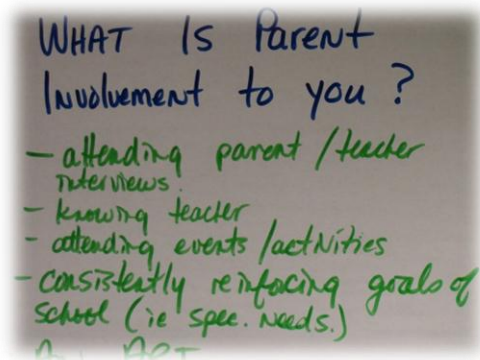 WHAT Is Parent
Involvement to you ?
- attending parent / teacher
interviews.
- knowing teacher
- attending events / activities
- consistently reinforcing goals of
school (ie spec. needs.)